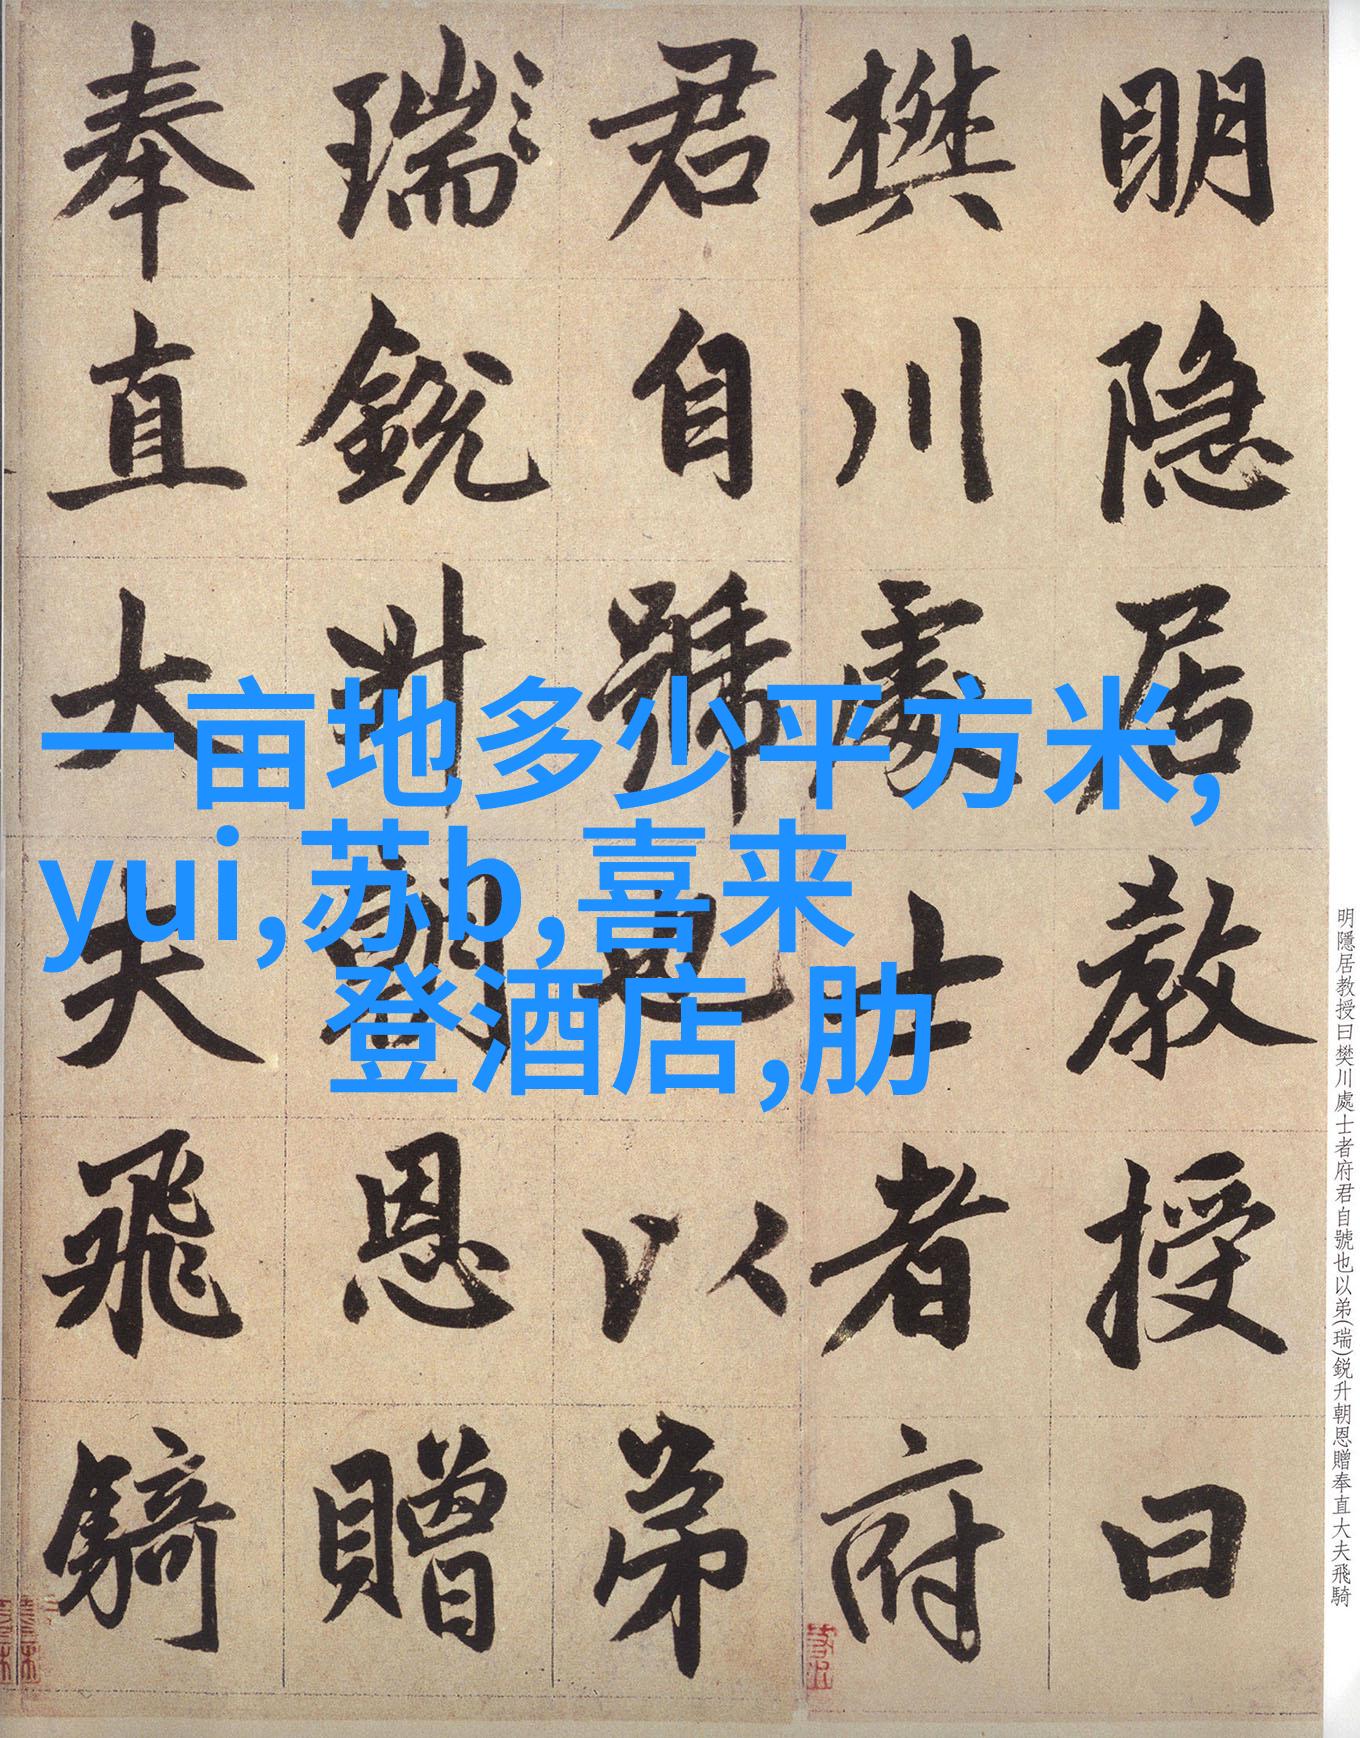 一亩地多少平方米,
yui,苏b,喜来
登酒店,肋
明隐居教授曰
樊川處士者府
君自號也以弟
瑞銳升朝恩贈
奉直大夫飛騎
明隱居教授曰樊川處士者府君自號也以弟(瑞)鋭升朝恩贈奉直大夫飛騎